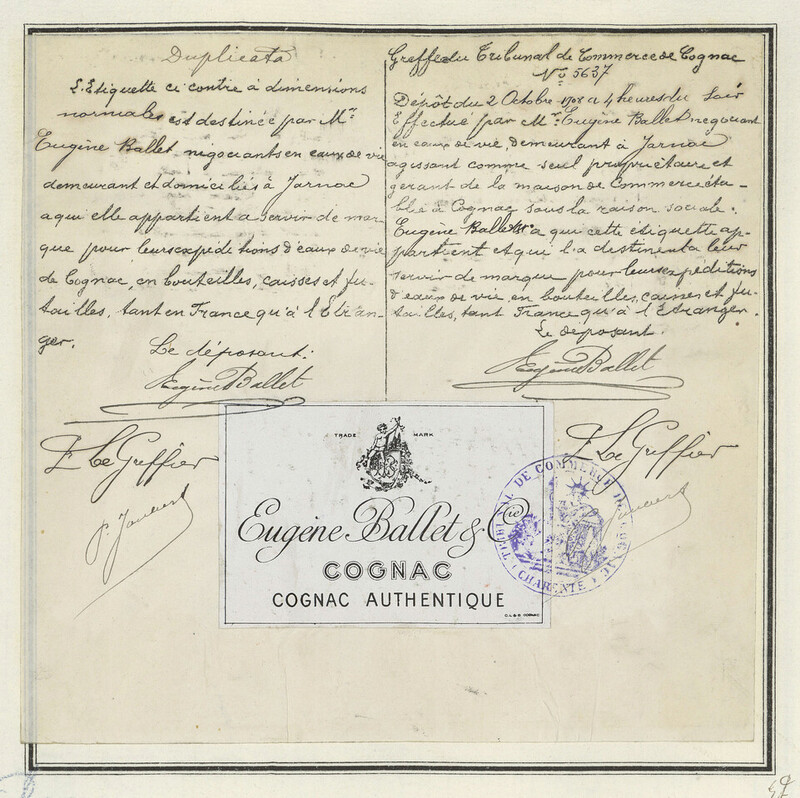 Duplicata
L'Etiquette ci contre à dimensions
normales est destinée par Mr
Eugène Ballet négociants en eaux de vie
demeurant et domiciliés à Jarnac
a qui elle appartient a servir de mar-
que pour leurs expéditions d'eaux de vie
de Cognac, en bouteilles, caisses et fu-
tailles, tant en France qu'à l'Etran-
ger.
Le déposant.
Eugène Ballet
P Le Greffier
Greffe du Tribunal de Commerce de Cognac
No 5637
Dépôt du 2 Octobre à 4 heures du Soir
Effectué par Mr Eugène Ballet négociant
en eaux de vie, demeurant à Jarnac
agissant comme seul propriétaire et
gérant de la maison de Commerce éta-
blie à Cognac sous la raison sociale:
Eugène Ballet a qui cette étiquette ap-
partient et qui l'a destinent a leur
servir de marque pour leurs expéditions
d'eaux de vie en bouteilles, caisses et fu-
tailles, tant France qu'à l'Etranger.
Le déposant.
Eugène Ballet
P Le Greffier
TRADE MARK
Eugène Ballet & Cie
COGNAC
COGNAC AUTHENTIQUE
TRIBUNAL DE COMMERCE DE COGNAC
(CHARENTE)